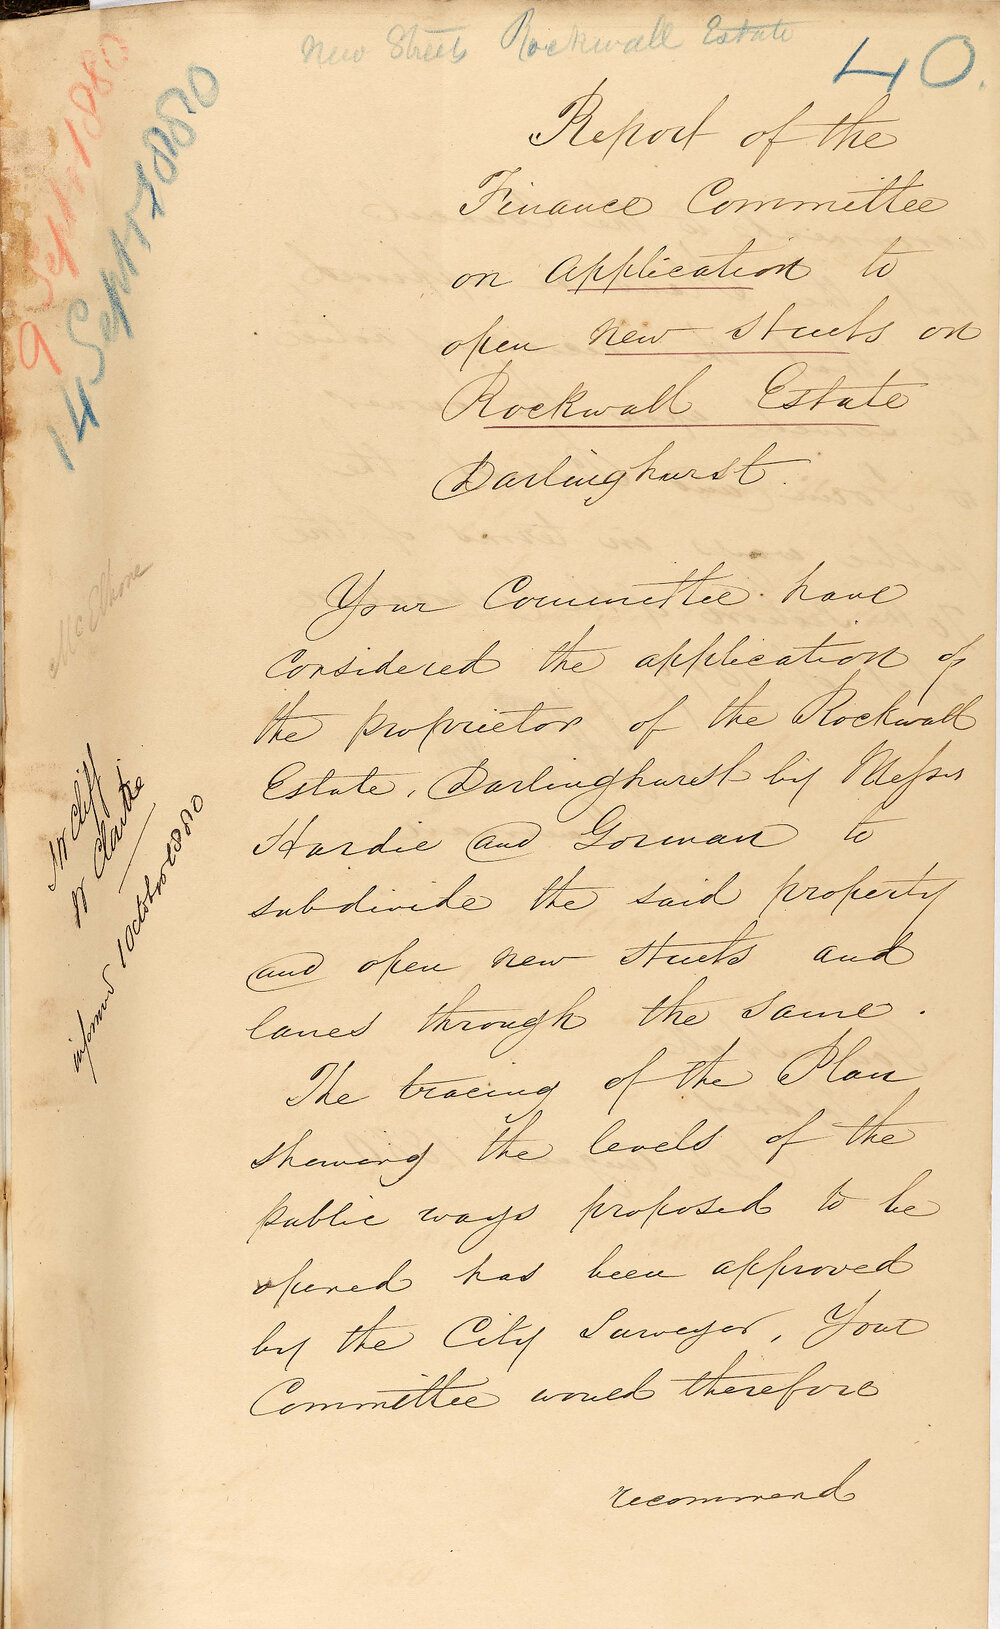 New Streets Rockwall Estate
40.
9 Septr 1880
14 Septr 1880
Report of the
Finance Committee
on application to
open new streets on
Rockwall Estate
Darlinghurst.
McElhone
Your Committee have
considered the application of
the proprietor of the Rockwall
Estate, Darlinghurst by Messrs
Hardie and Gorman to
subdivide the said property
and open new streets and
lanes through the same.
The tracing of the Plan
shewing the levels of the
public ways proposed to be
opened has been approved
by the City Surveyor, Your
Committee would therefore
recommend
informed 1 October 1880